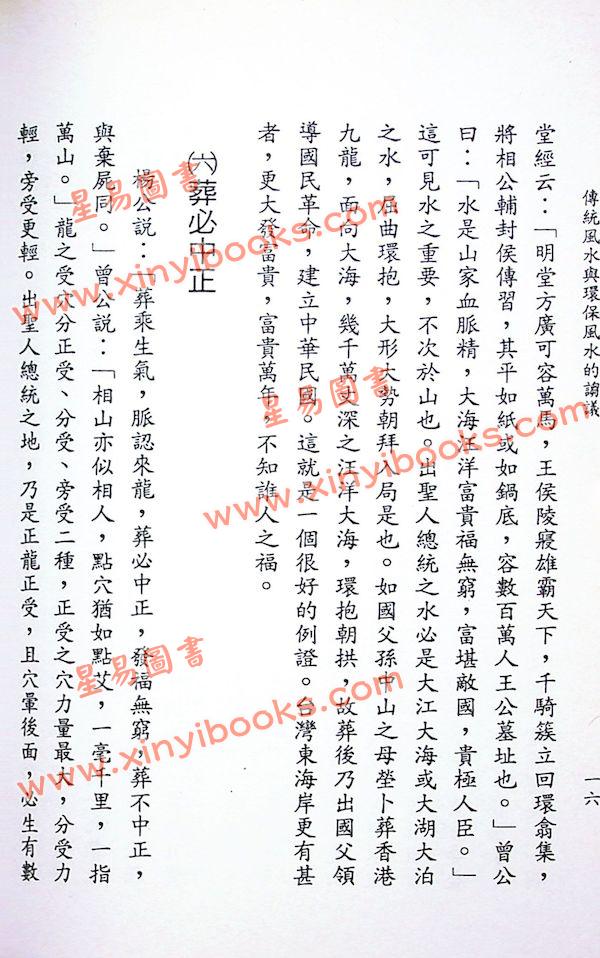 傳統風水與環保風水的諍議
一六
堂經云：「明堂方廣可容萬馬，王侯陵寢雄霸天下，千騎簇立回環翕集，
將相公輔封侯傳習，其平如紙或如鍋底，容數百萬人王公墓址也。」曾公
曰：「水是山家血脈精，大海汪洋富貴福無窮，富堪敵國，貴極人臣。」
這可見水之重要，不次於山也。出聖人總統之水必是大江大海或大湖大泊
之水，屈曲環抱，大形大勢朝拜入局是也。如國父孫中山之母塋卜葬香港
九龍，面向大海，幾千萬丈深之汪洋大海，環抱朝拱，故葬後乃出國父領
導國民革命，建立中華民國。這就是一個很好的例證。台灣東海岸更有甚
者，更大發富貴，富貴萬年，不知誰人之福。
㈥葬必中正
楊公說：「葬乘生氣，脈認來龍，葬必中正，發福無窮，葬不中正，
與棄屍同。」曾公說：「相山亦似相人，點穴猶如點艾，一毫千里，一指
萬山。」龍之受穴分正受、分受、旁受二種，正受之穴力量最大，分受力
輕，旁受更輕。出聖人總統之地，乃是正龍正受，且穴暈後面，必生有數
星易圖書
www.xinyibooks.com
星易圖書
www.xinyibooks.com
星易圖書
www.xinyibooks.com